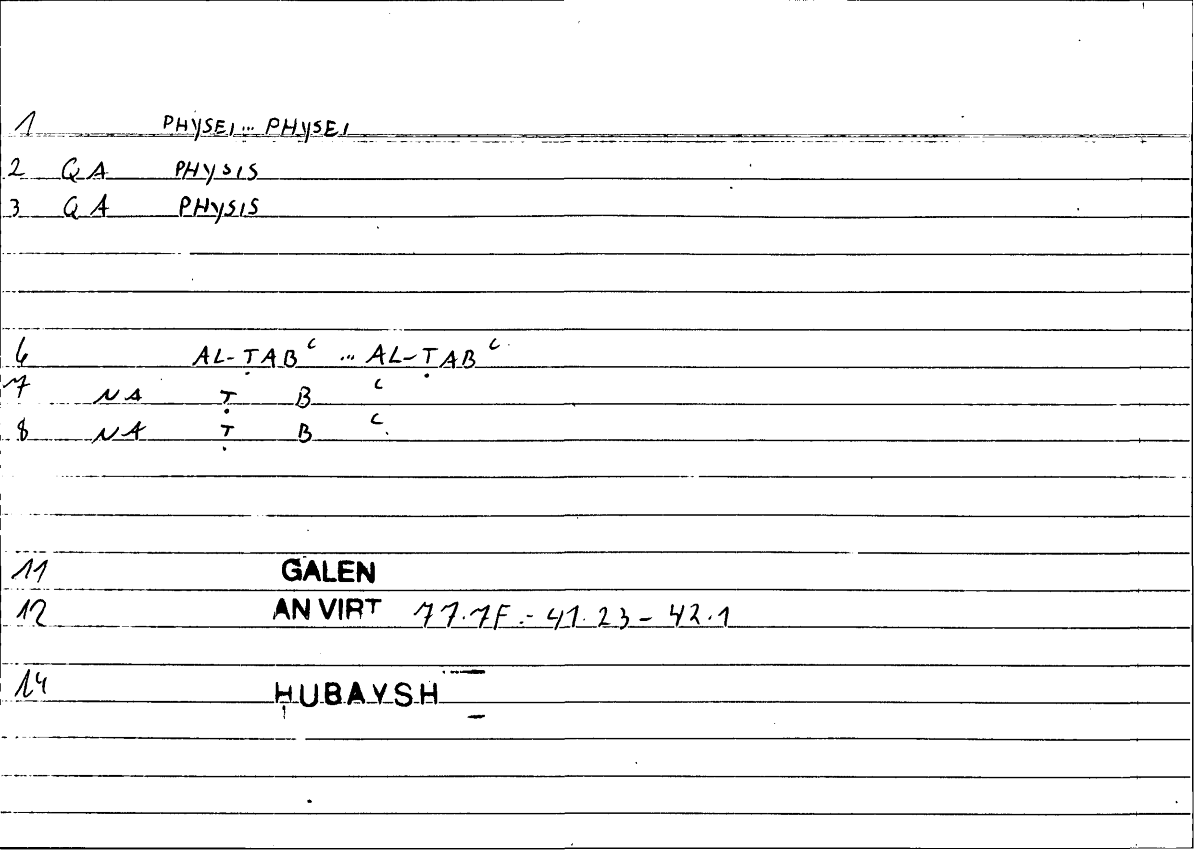 1 PHYSEI... PHYSEI
2 QA PHYSIS
3 QA PHYSIS
6 AL-ṬABʿ ... AL-ṬABʿ
7 NA Ṭ B ʿ
8 NA Ṭ B ʿ
11 GALEN
12 AN VIRT 77.7F.- 41.23 - 42.1
14 ḤUBAYSH